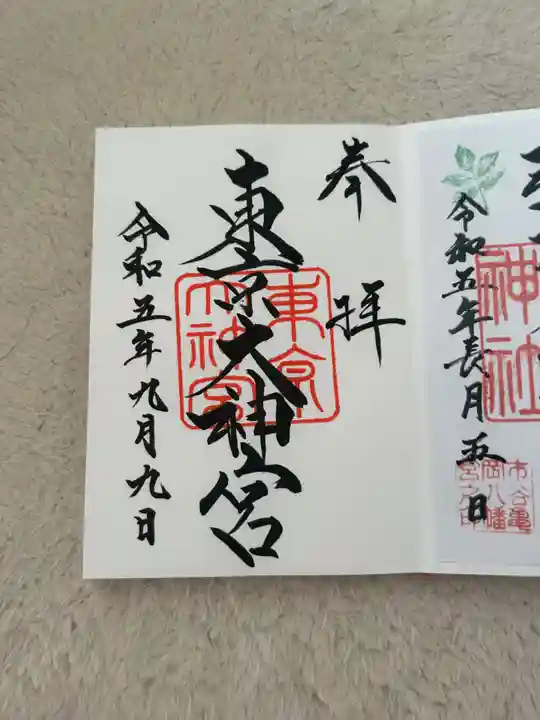 奉拝
東京大神宮
東京
大神宮
令和五年九月九日
神社
令和五年長月五日
市谷亀
岡八幡
宮之印